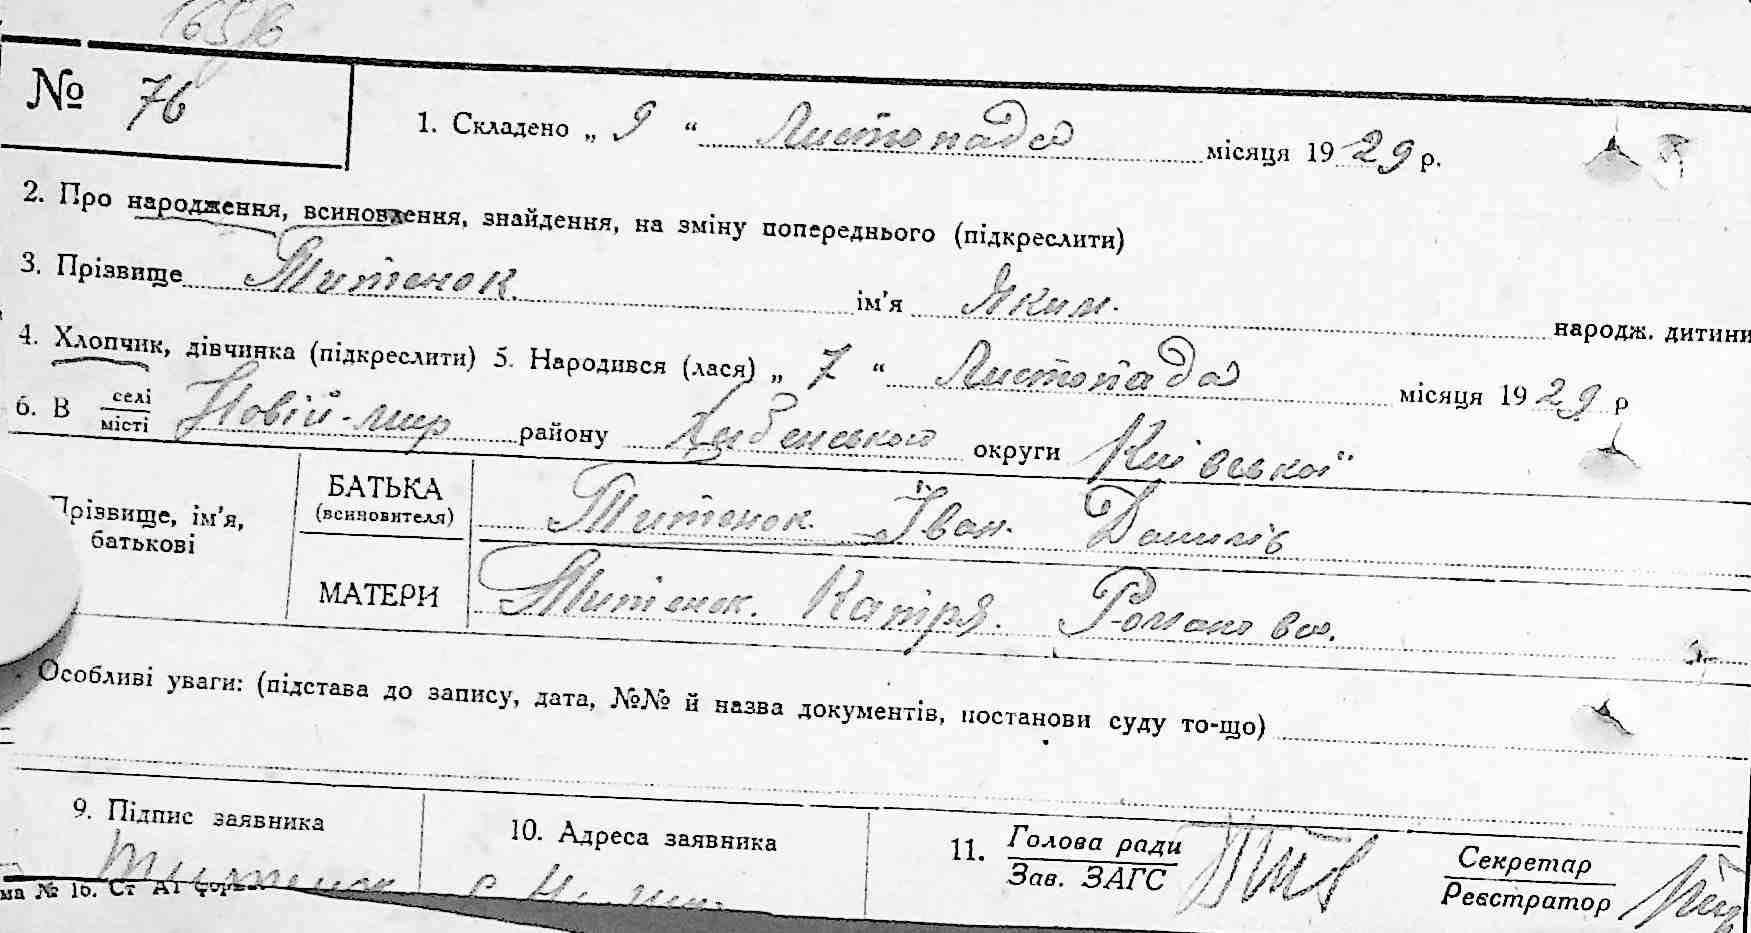 1658
№ 76
1. Складено „ 9 “ Листопада місяця 1929 р.
2. Про народження, всиновлення, знайдення, на зміну попереднього (підкреслити)
3. Прізвище Титенок ім'я Яким. народж. дитини
4. Хлопчик, дівчинка (підкреслити) 5. Народився (лася) „ 7 “ Листопада місяця 1929 р
6. В селі місті Новій-мир району округи Київської
Прізвище, ім'я, батькові
БАТЬКА (всиновителя) Титенок Іван. Данилів
МАТЕРИ Титенок. Катря. Романова.
Особливі уваги: (підстава до запису, дата, №№ й назва документів, постанови суду то-що)
9. Підпис заявника Титенок
10. Адреса заявника
11. Голова ради Зав. ЗАГС
Секретар Реєстратор
ма № 16. Ст А1 фор